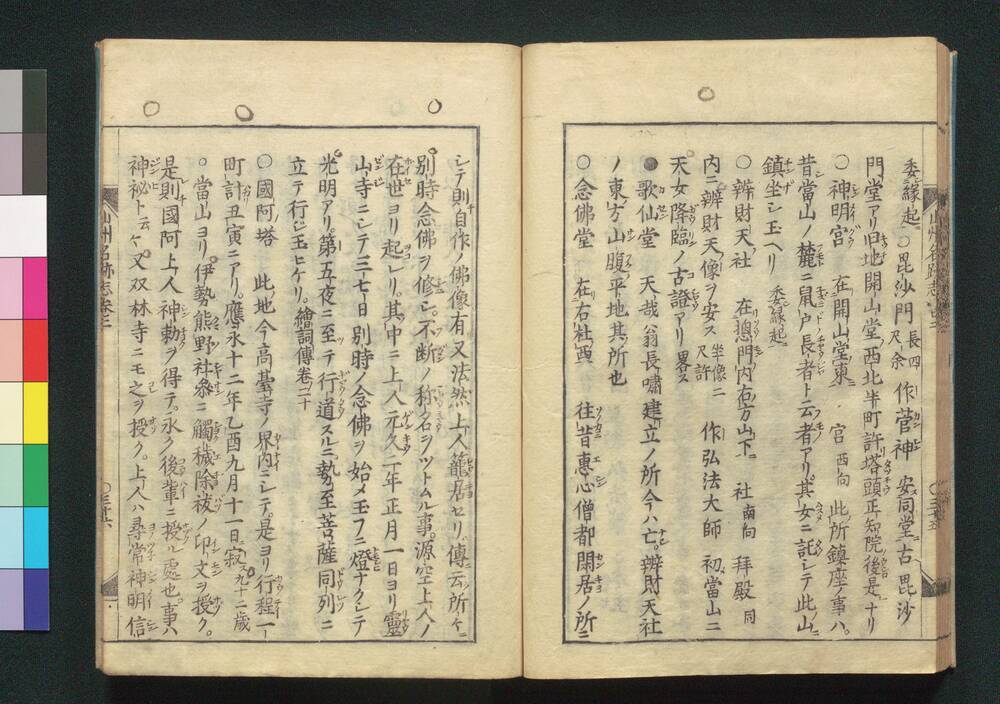 委縁起○毘沙門長四尺余作菅神安同堂古毘沙
門堂アリ旧地開山堂西北半町許塔頭正知院後是ナリ
○神明宮在開山堂東宮西向此所鎮座ノ事ハ
昔當山ノ麓ニ鼠戸長者ト云者アリ其女ニ託シテ此山ニ
鎮坐シ玉ヘリ委縁起
○辨財天社在摠門内右方山下社南向拝殿同
内ニ辨財天像ヲ安ス坐像二尺許作弘法大師初當山ニ
天女降臨ノ古證アリ畧ス
●歌仙堂天哉翁長嘯建立ノ所今ハ亡辨財天社
ノ東方山腹平地其所也
○念佛堂在右社西往昔惠心僧都閑居ノ所ニ
シテ則自作ノ佛像有又法然上人籠居セリ傳云所ケニ
別時念佛ヲ修シ不断ノ称名ヲツトムル事源空上人ノ
在世ヨリ起レリ其中ニ上人元久二年正月一日ヨリ靈
山寺ニシテ三七日別時ノ念佛ヲ始メ玉フニ燈ナクシテ
光明アリ第五夜ニ至テ行道スルニ勢至菩薩同列ニ
立テ行シ玉ヒケリ繪詞傳卷二十
○國阿塔此地今高臺寺ノ界内ニシテ是ヨリ行程一
町計丑寅ニアリ應永十二年乙酉九月十一日寂九十二歳
○當山ヨリ伊勢熊野社參ニ觸穢除祓ノ印文ヲ授ク
是則國阿上人神勅ヲ得テ永ク後輩ニ授ル處也事ハ
神祕ト云ヽ又双林寺ニモ之ヲ授ク上人ハ尋常神明信
山州名跡志卷二